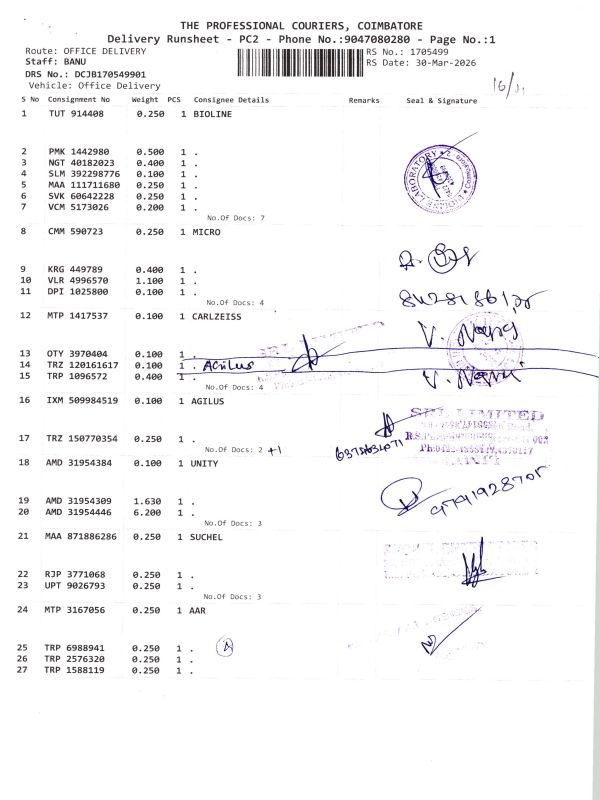 THE PROFESSIONAL COURIERS, COIMBATORE
Delivery Runsheet - PC2 - Phone No.:9047080280 - Page No.:1
Route: OFFICE DELIVERY
RS No.: 1705499
Staff: BANU
RS Date: 30-Mar-2026
DRS No.: DCJB170549901
Vehicle: Office Delivery
S No Consignment No Weight PCS Consignee Details Remarks Seal & Signature
1 TUT 914408 0.250 1 BIOLINE
2 PMK 1442980 0.500 1 .
3 NGT 40182023 0.400 1 .
4 SLM 392298776 0.100 1 .
5 MAA 111711680 0.250 1 .
6 SVK 60642228 0.250 1 .
7 VCM 5173026 0.200 1 .
No.Of Docs: 7
8 CMM 590723 0.250 1 MICRO
9 KRG 449789 0.400 1 .
10 VLR 4996570 1.100 1 .
11 DPI 1025800 0.100 1 .
No.Of Docs: 4
12 MTP 1417537 0.100 1 CARLZEISS
13 OTY 3970404 0.100 1 .
14 TRZ 120161617 0.100 1 . Agilus
15 TRP 1096572 0.400 1 .
No.Of Docs: 4
16 IXM 509984519 0.100 1 AGILUS
SRL LIMITED
17 TRZ 150770354 0.250 1 .
No.Of Docs: 2 +1
18 AMD 31954384 0.100 1 UNITY
9791928705
19 AMD 31954309 1.630 1 .
20 AMD 31954446 6.200 1 .
No.Of Docs: 3
21 MAA 871886286 0.250 1 SUCHEL
22 RJP 3771068 0.250 1 .
23 UPT 9026793 0.250 1 .
No.Of Docs: 3
24 MTP 3167056 0.250 1 AAR
25 TRP 6988941 0.250 1 .
26 TRP 2576320 0.250 1 .
27 TRP 1588119 0.250 1 .